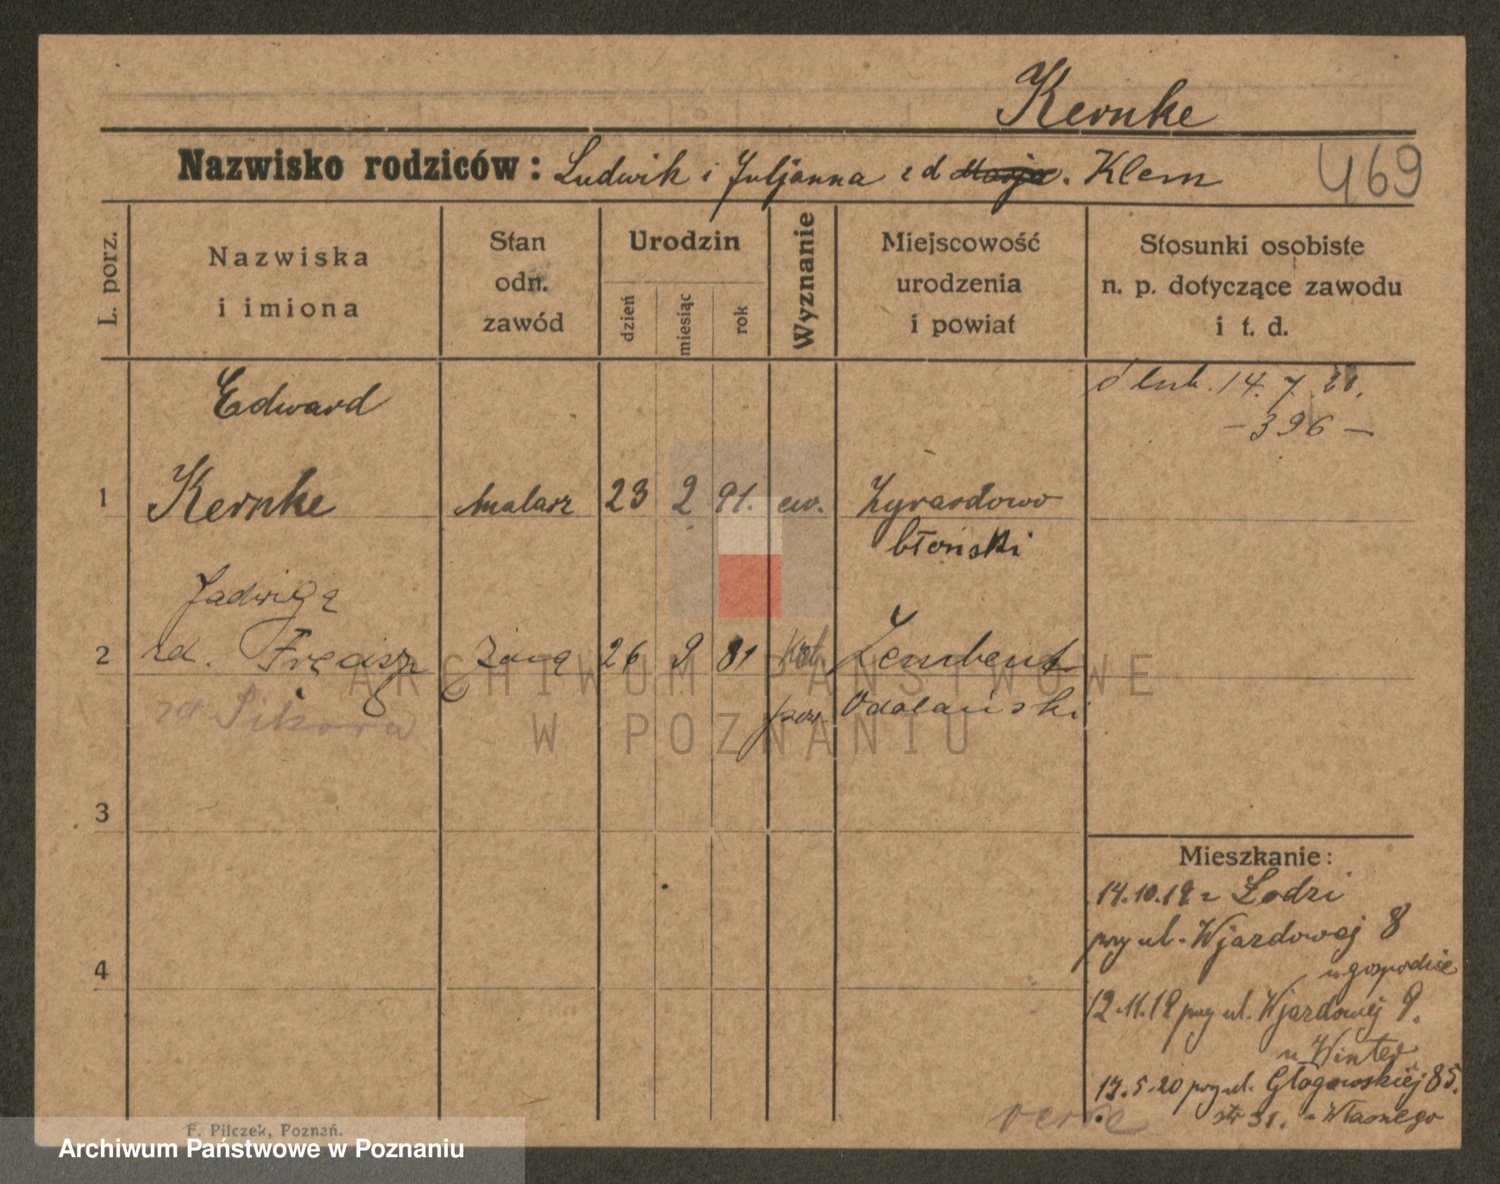 Kernke
Nazwisko rodziców: Ludwik i Juljanna z d. Klem
469
L. porz.
Nazwiska
i imiona
Stan
odn.
zawód
Urodzin
dzień
miesiąc
rok
Wyznanie
Miejscowość
urodzenia
i powiat
Stosunki osobiste
n. p. dotyczące zawodu
i t. d.
ślub. 14. 7. 20.
- 396 -
Edward
1 Kernke malarz 23 2 91. ew. Żyrardowo
błoński
Jadwiga
2 zd. żona 26 9 81 kat. Zembent
Odolański
zd Sikora
3
4
Mieszkanie:
14.10.19 z Łodzi
przy ul. Wjazdowej 8
w gospodzie
12.11.19 przy ul. Wjazdowej 9.
u Winter
17.5.20 przy ul. Głogowskiej 85.
str 31. u Własnego
verte
F. Pilczek, Poznań.
ARCHIWUM PAŃSTWOWE
W POZNANIU
Archiwum Państwowe w Poznaniu